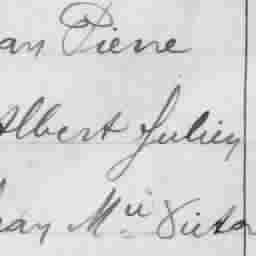 an Pierre
Albert Julien
ean Mie Victo